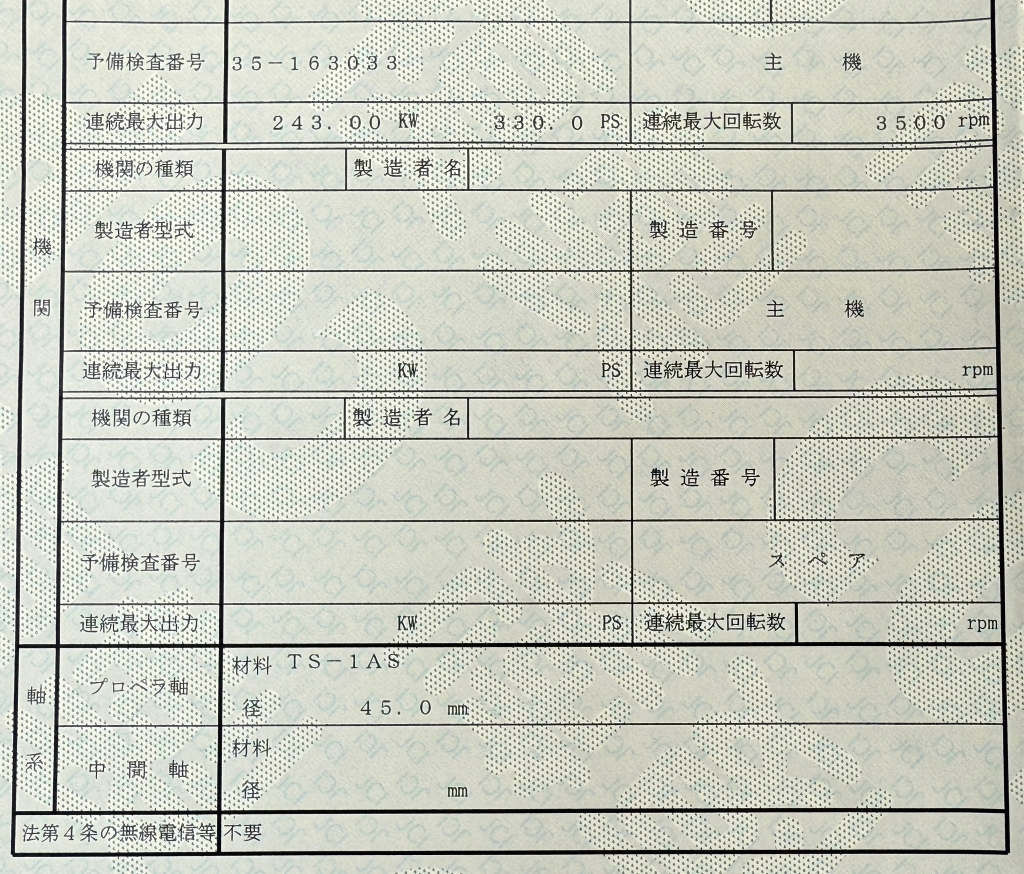 予備検査番号 35-163033 主 機
連続最大出力 243.00 KW 330.0 PS 連続最大回転数 3500 rpm
機関の種類 製造者名
製造者型式 製造番号
機関
予備検査番号 主 機
連続最大出力 KW PS 連続最大回転数 rpm
機関の種類 製造者名
製造者型式 製造番号
予備検査番号 スペア
連続最大出力 KW PS 連続最大回転数 rpm
軸系
プロペラ軸 材料 TS-1AS
径 45.0 mm
中間軸 材料
径 mm
法第4条の無線電信等 不要